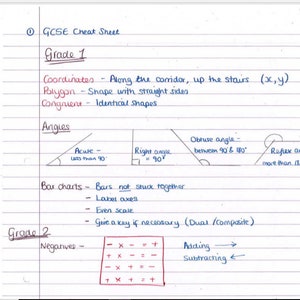 ① GCSE Cheat Sheet
Grade 1
Coordinates - Along the corridor, up the stairs (x, y)
Polygon - Shape with straight sides
Congruent - Identical shapes
Angles
Acute - less than 90°
Right angle = 90°
Obtuse angle - between 90° & 180°
Reflex a
more than 1
Bar charts - Bars not stuck together
- Label axes
- Even scale
- Give a key if necessary (Dual / Composite)
Grade 2
Negatives - - x - = +
+ x - = -
- x + = -
+ x + = +
Adding →
Subtracting ←